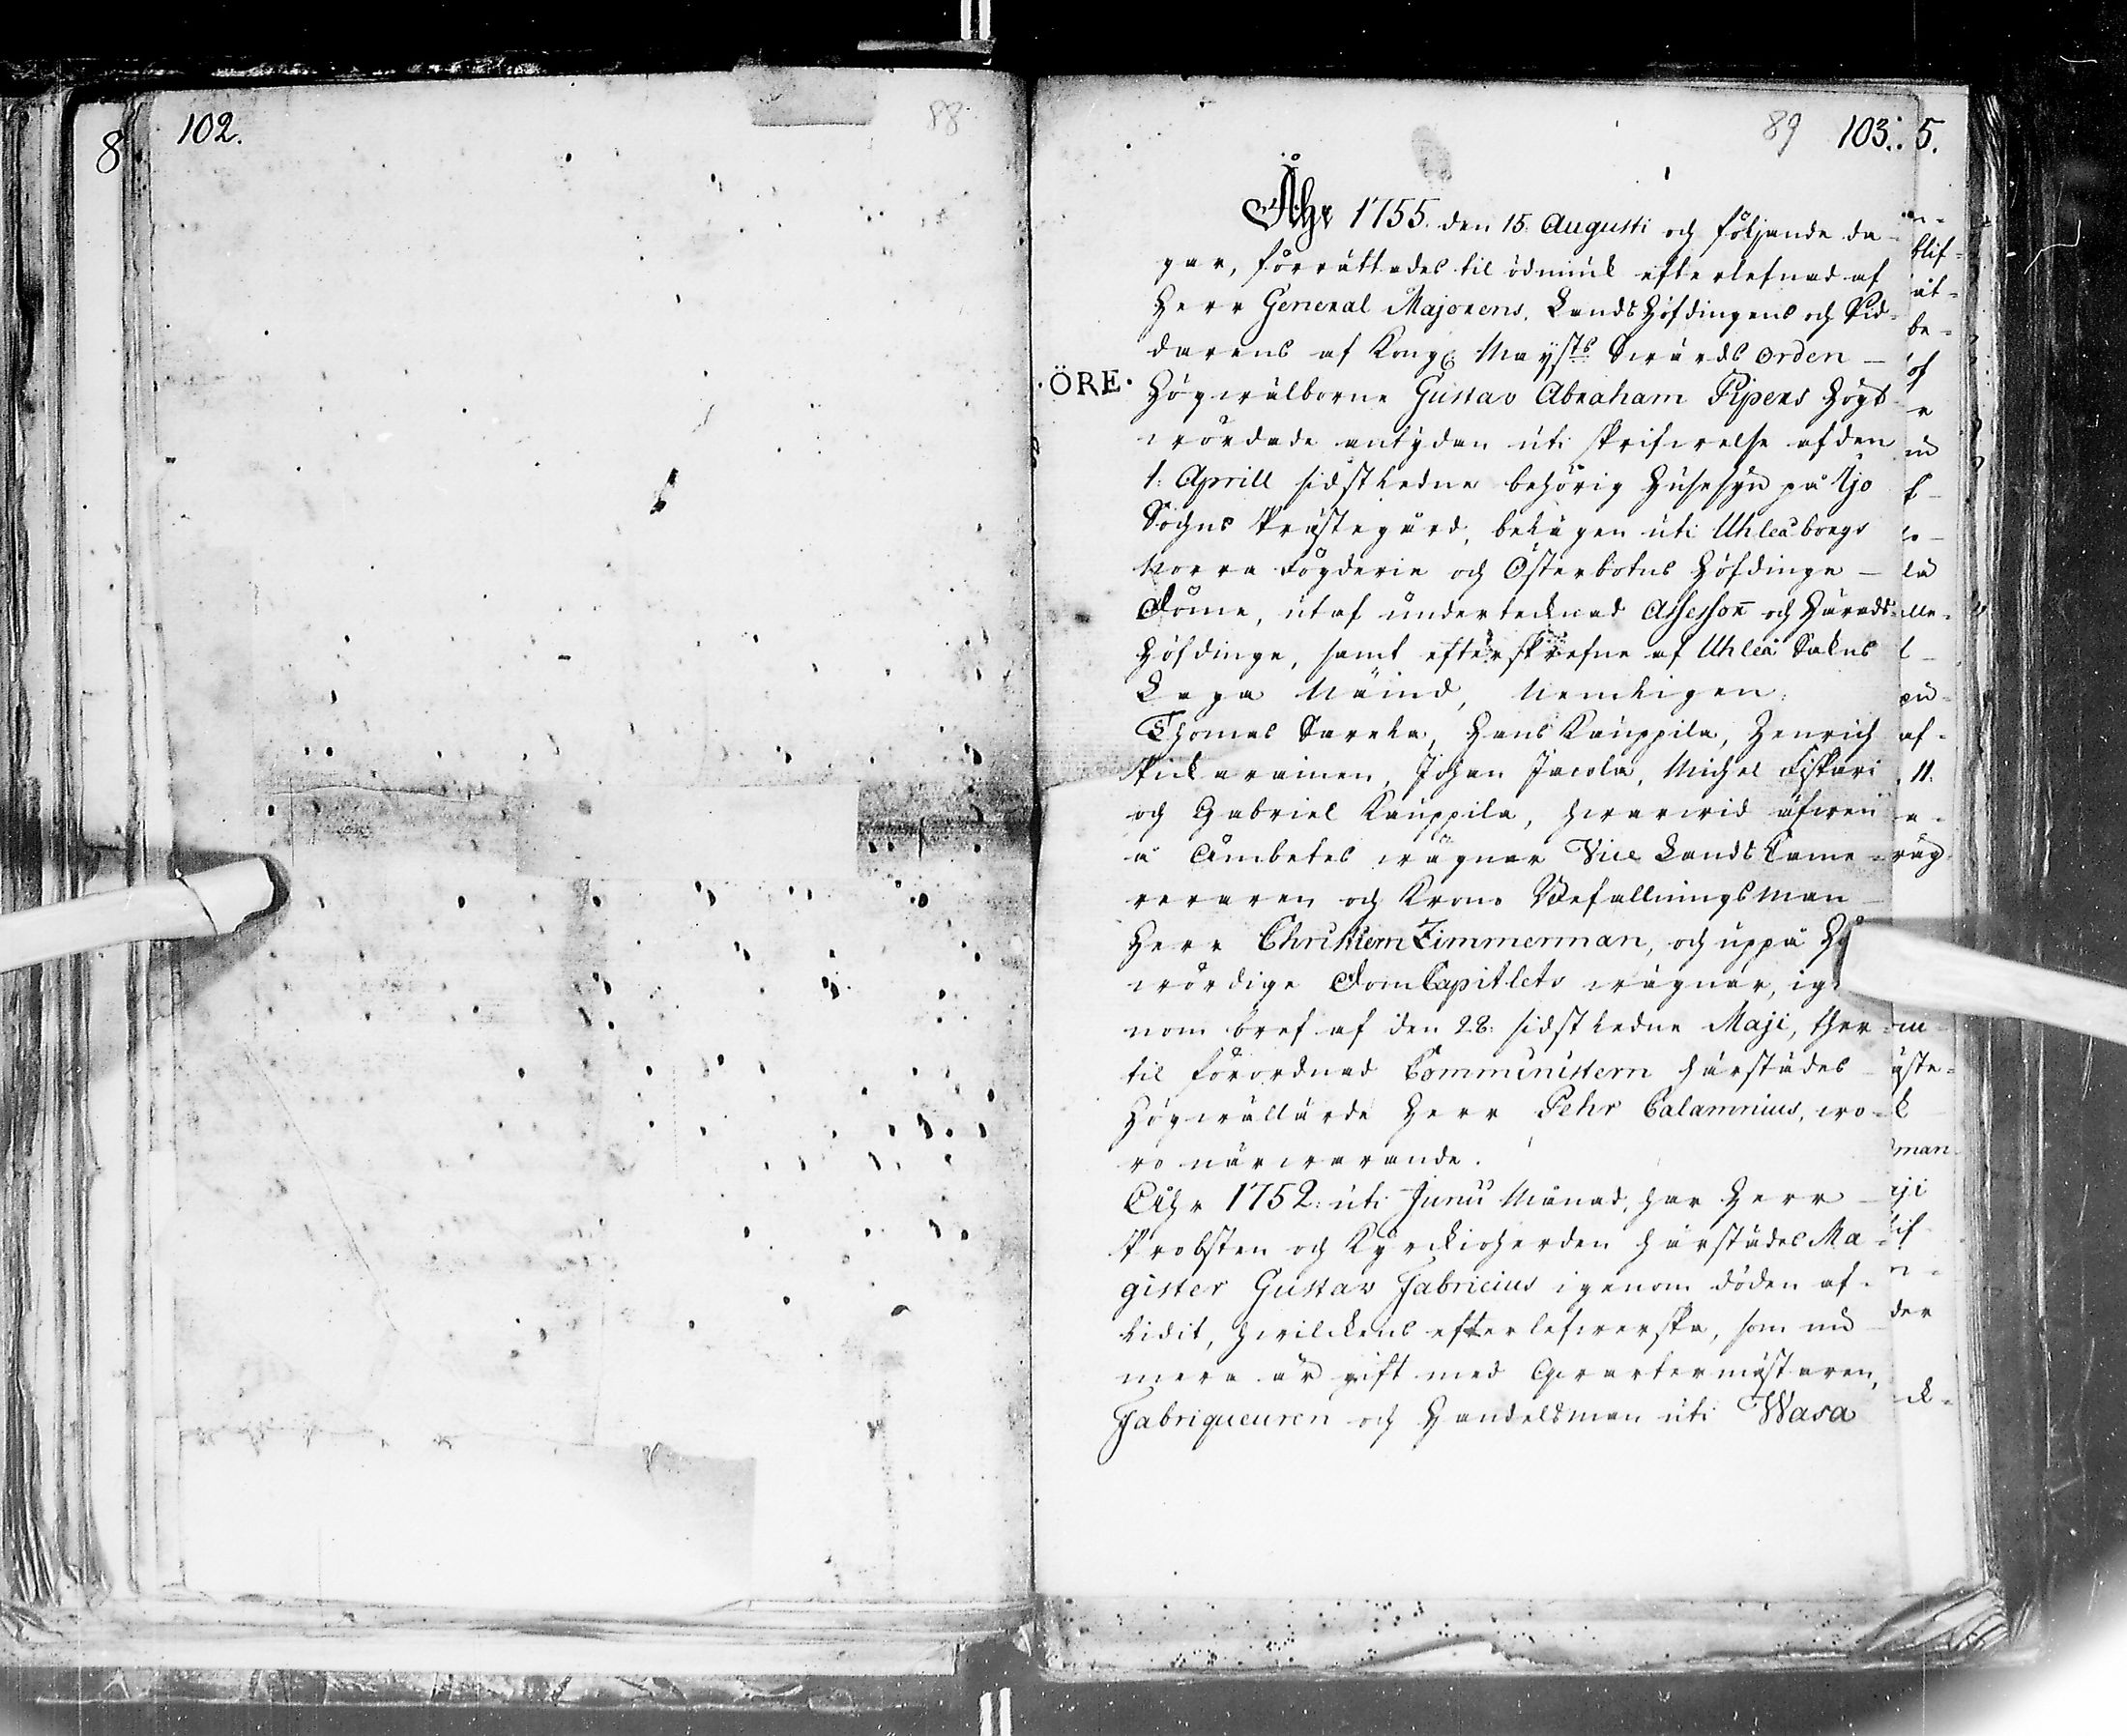 102.
88
8
89 103. 5.
Åhr 1755. den 15. Augusti och följande da-
gar, förrättades til ödmiuk efterlefnad af
Herr General Majorens, Landshöfdingens och Rid-
darens af Kongl. Mayts Swärds Orden -
ÖRE
Högwälborne Gustav Abraham Pipers Högt
wördade antydan uti skrifwelse af den
1. Aprill sidstledne behörig Huusesyn på Ijo
Sochns Prästegård, belägen uti Uhleåborgs
Norra Fögderie och Österbotns Höfdinge -
Döme, utaf undertecknad Assessor och Härads-
Höfdinge, samt efterskrefne af Uhleå Sokns
Laga Nämd, Nemligen:
Thomas Sarela, Hans Kauppila, Henrich
Pickarainen, Johan Jacola, Michel Fiskari
och Gabriel Kauppila, hwarwid äfwen
å Ämbetes wägnar Vice Lands Came-
reraren och Krono Befallningsman -
Herr Christiern Zimmerman, och uppå
wördige Dom Capitlets wägnar, ige
nom bref af den 28. sidstledne Maji, ther
til förordnad Comministern härstädes -
Högwällärde Herr Pehr Calamnius, wo-
ro närwarande.
Åhr 1752. uti Junii Månad, har Herr -
Probsten och Kyrckioherden härstädes Ma-
gister Gustav Fabricius igenom döden af-
lidit, hwilckens efterlefwerska, som nu
mera är gift med Qwartermästaren,
Fabriqueuren och Handelsman uti Wasa
blif-
åt-
be-
af-
11.
wäg
äste-
man
der